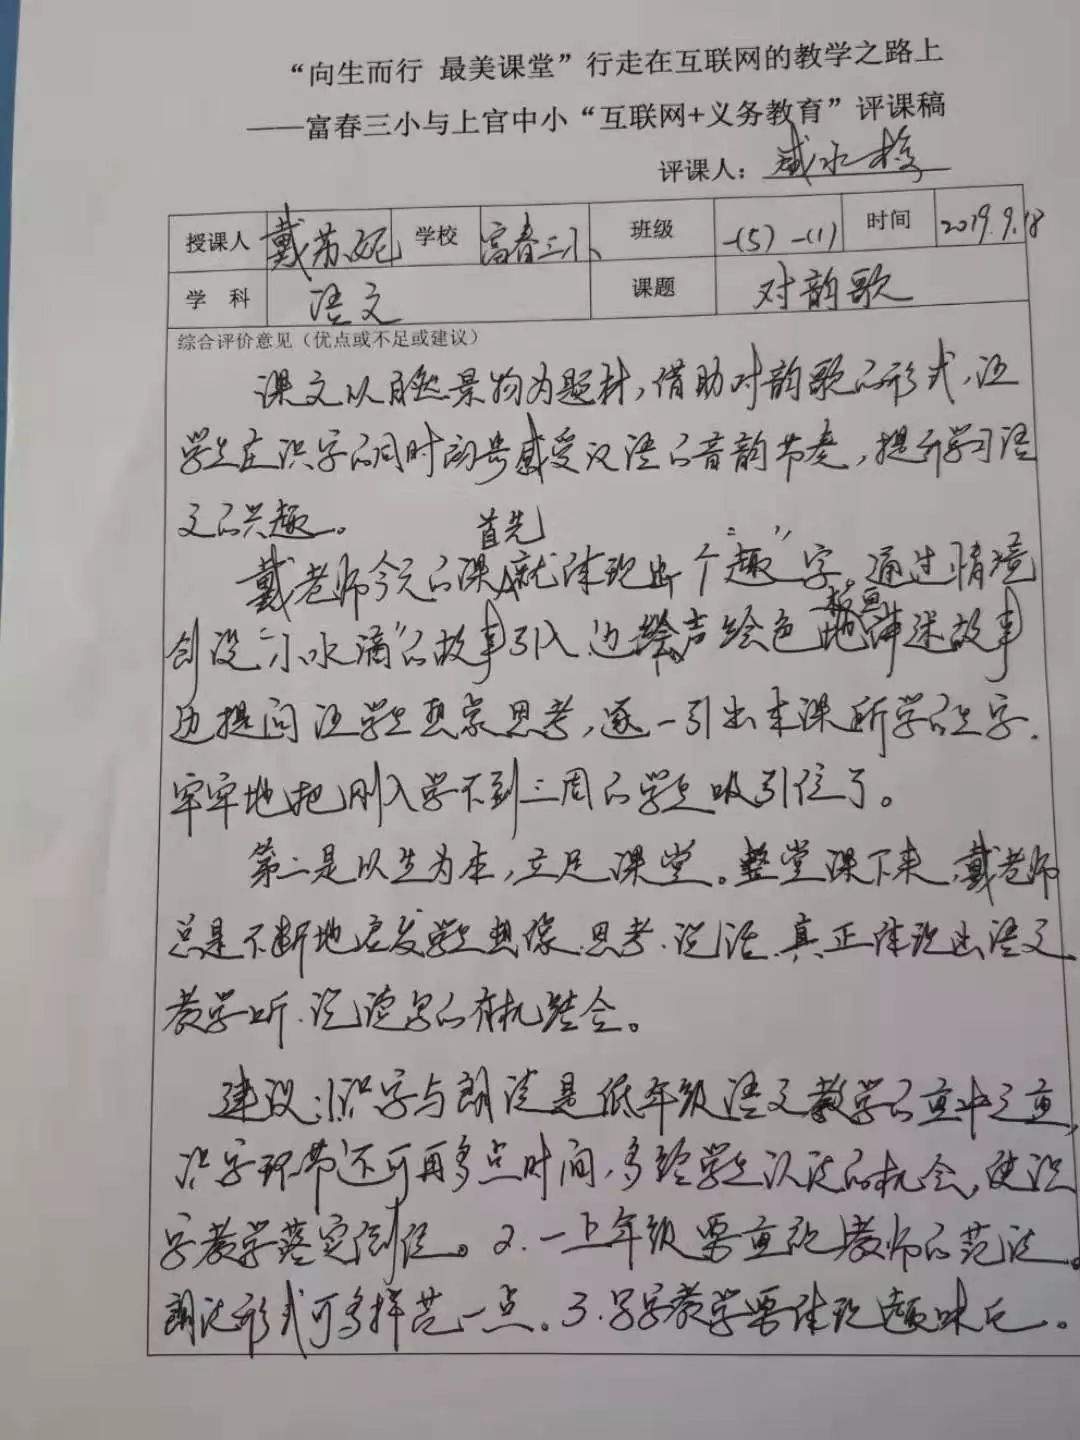 “向生而行 最美课堂”行走在互联网的教学之路上
——富春三小与上官中小“互联网+义务教育”评课稿
评课人：臧水梅
授课人 戴苏妮 学校 富春三小 班级 一(5) 一(1) 时间 2019.9.18
学 科 语文 课题 对韵歌
综合评价意见（优点或不足或建议）
课文以自然景物为题材，借助对韵歌的形式，让
学生在识字的同时初步感受汉语的音韵节奏，提升学习语
文的兴趣。
首先
戴老师今天的课就体现出个“趣”字。通过情境
板画
创设“小水滴”的故事引入，边绘声绘色地讲述故事
边提问让学生想象思考，逐一引出本课所学的生字.
牢牢地把刚入学不到三周的学生吸引住了。
第二是以生为本，立足课堂。整堂课下来，戴老师
总是不断地启发学生想像.思考.说话.真正体现出语文
教学听.说读写的有机结合。
建议：1.识字与朗读是低年级语文教学的重中之重，
识字环节还可再多点时间，多给学生认读的机会，使识
字教学落实到位。2.一上年级要重视教师的范读。
朗读形式可多样些一点。3.写字教学要体现趣味化。